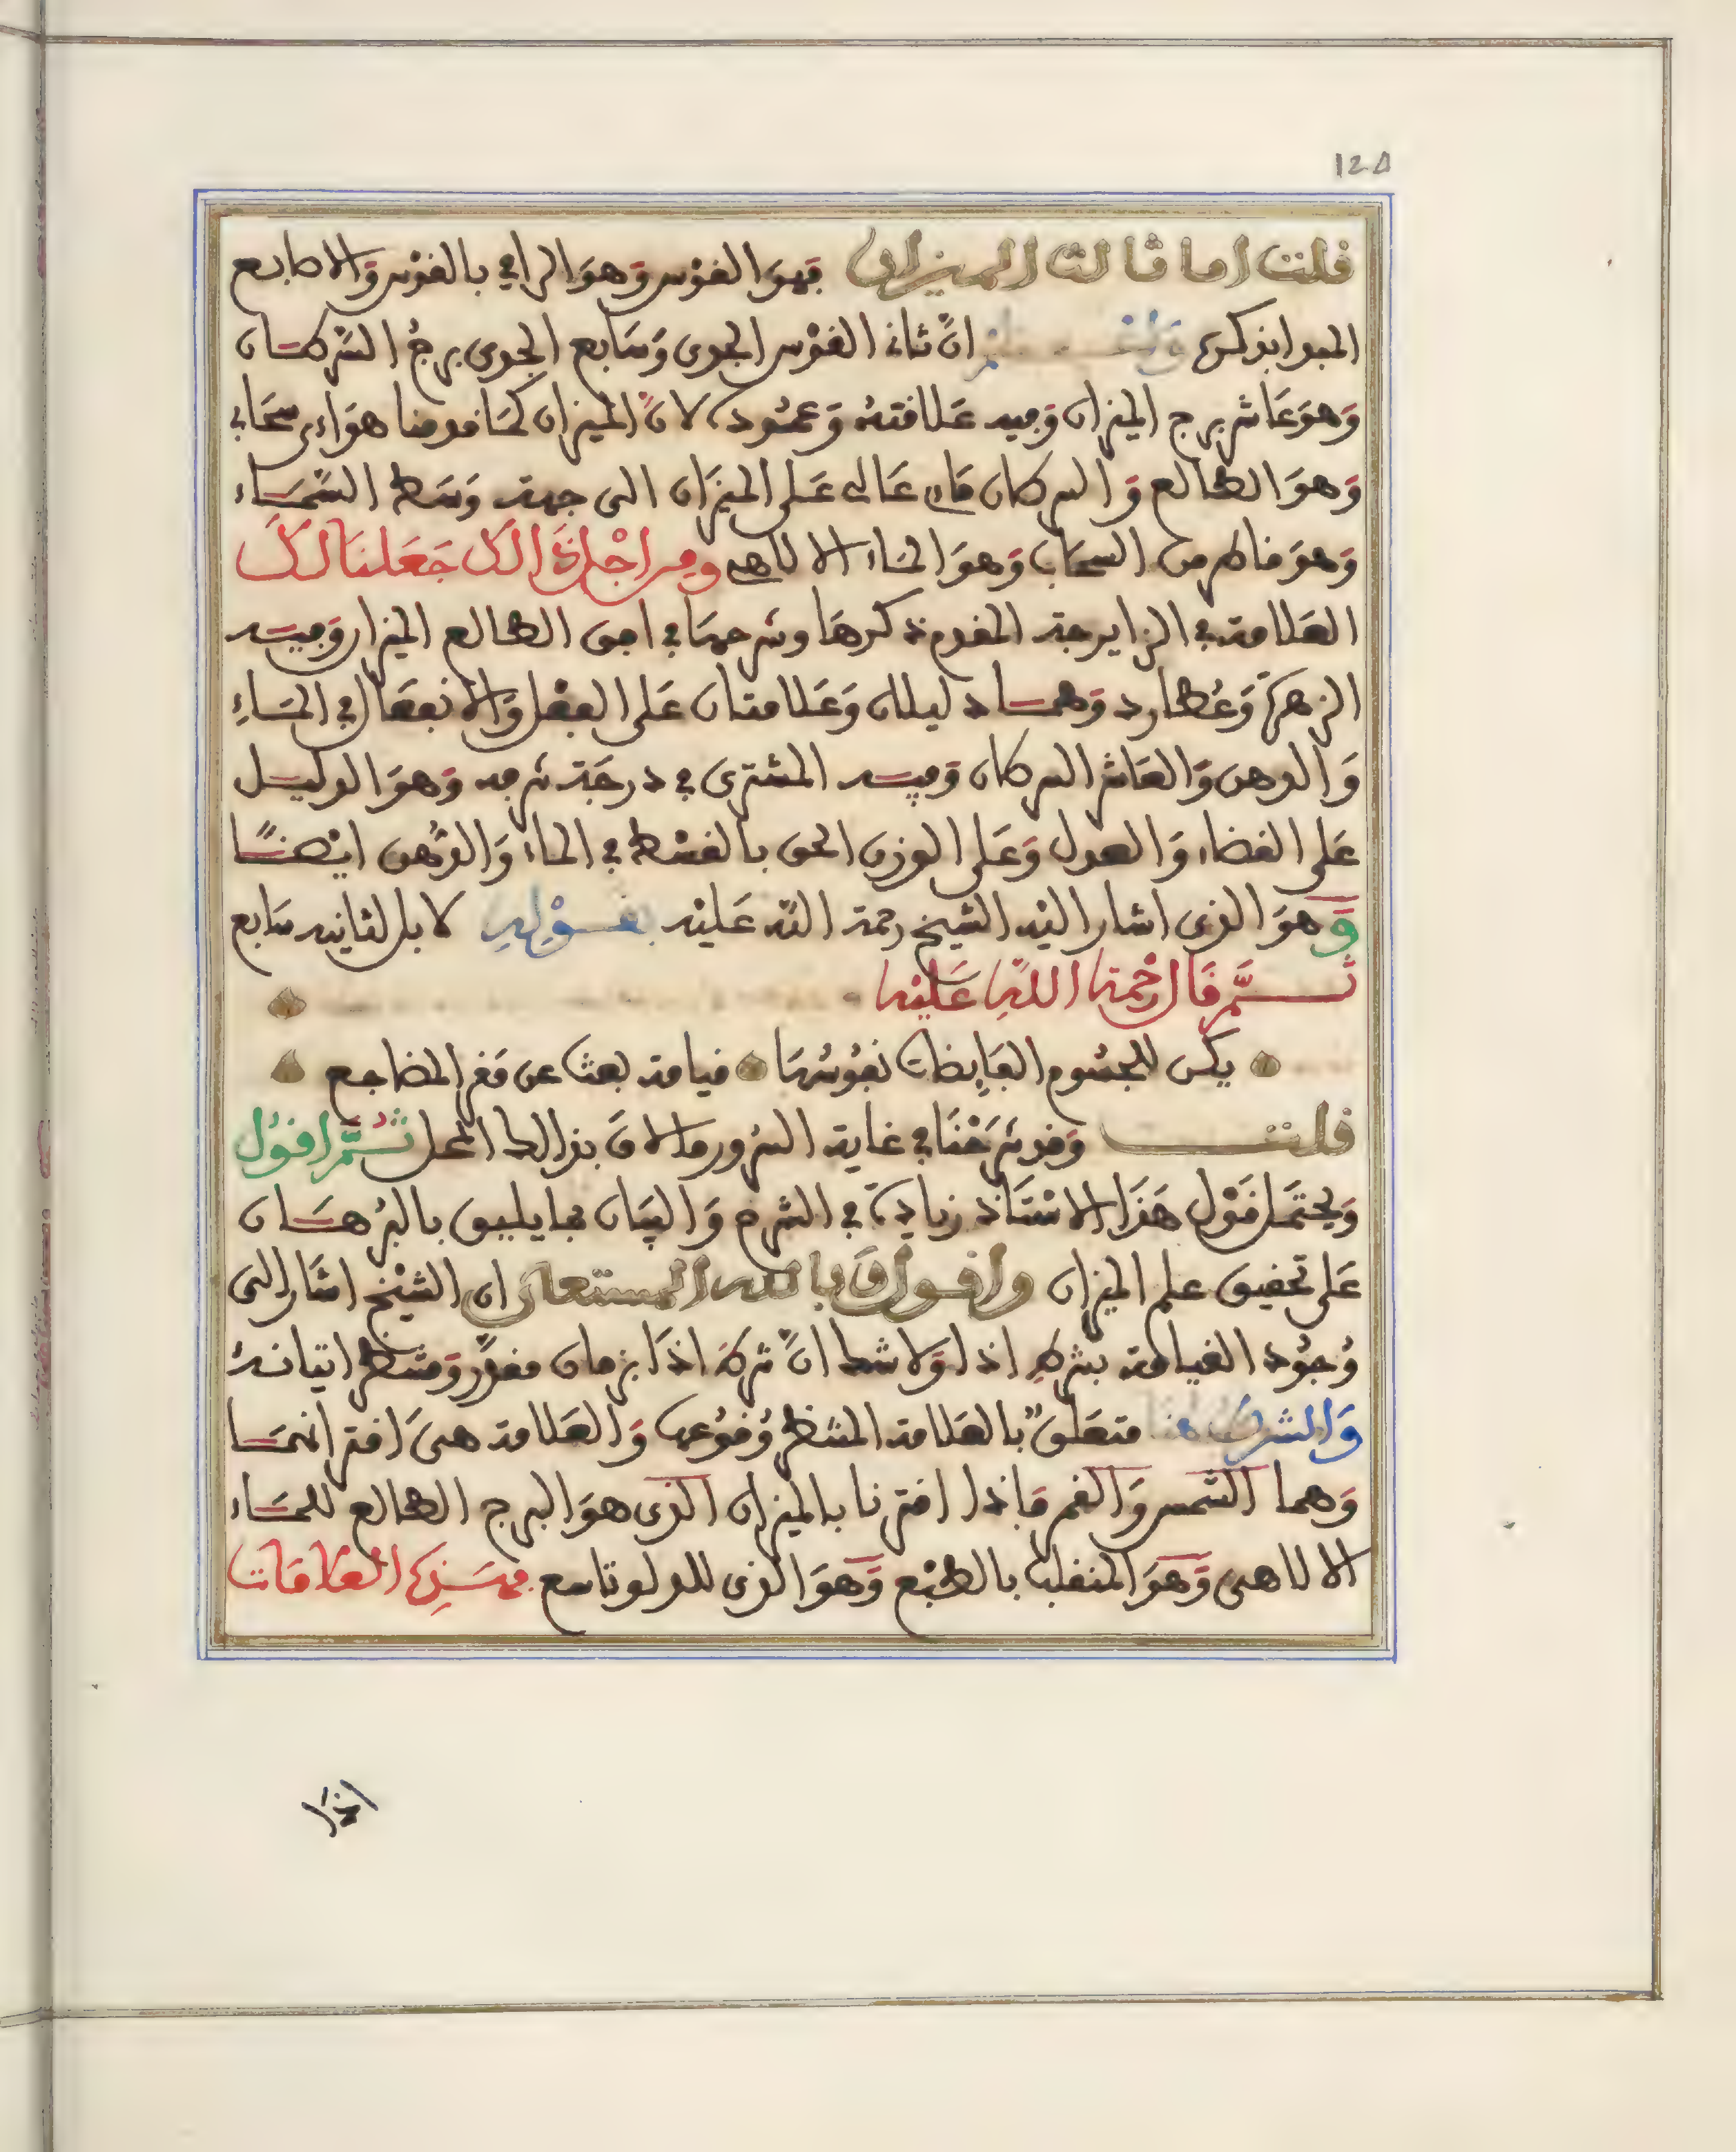 125
قلت اما ثالث الميزان فهوَ القوْس وَهوَ الرامي بالقوْس وَالاصابع
المبدا بذكره وَنعنـ انَّ ثاني القوْس الجدي وَسَابع الجدي برجُ السَّرطـان
وَهوَ عَاشر برج الميزان وَفيه عَلاقتهُ وَعمُوده لانَّ الميزان كمَا قدمنا هوَاءي سحَابي
وَهوَ الطالع وَالسرطان مَاءي عَالي عَلى الميزَان الى جهة وَسَط السَّمَـاء
وَهوَ مَاطر من السحَاب وَهوَ المَاء الالاهي ومن اجْل ذَالك جَعَلنَا لَكَ
العَلامة في الزايرجة المقدم ذكرهَا وشرحهَا في افق الطالع الميزان وَفيـه
الزهرَة وَعُطارد وَهمـا دليلان وَعَلامتان عَلى الفعْل وَالانفعَال في المـَاءِ
وَالدهن وَالعَاشر السرطان وَفيـه المشتري في درجَة شرفه وَهوَ الدليـل
عَلى القضاء وَالعدل وَعَلى الوزن الحق بالقسْط في الماء وَالدُّهن ايْضـًا
وَهوَ الذي اشار اليْه الشيخ رحمة اللّه عَليْه بقـوْلهِ لا بل لثانيه سَابع
ثـمَّ قَال رحْمة اللّهِ عَليْه
يكن للجسُوم الفَايِضات نفوُسُهَا قيامة بعث عن مَقر المضاجع
قلتـ وَقد شرَحْنَا في غاية السُّرور مالاقَ بذالك المحل ثُـمَّ اقوُل
وَيحتمَل قوْل هَذَا الاسْتَاذ زيادَة في الشرح وَالبيَان مما يليق بالبُرهـَان
عَلى تحقيق علم الميزان وَاقـول وَبالله المستعان ان الشيْخ اشَار الى
وُجوُد القيامة بشرطِ اذا وَلا شك انَّ شرطَ اذَا بزمان مقدَّر وَمنتظر اتيانـهُ
وَالشرط هنَا متعَلقٌ بالعَلامة المنتظر وُقوُعهَا وَالعَلامة هيَ اقترانهمـَا
وَهما الشمس وَالقمر فَاذا اقترنا بالميزان الذي هوَ البرج الطالع للمـَاء
الالاهي وَهوَ المنقلب بالطبْع وَهوَ الذي للدلو تاسع فهـَذِه العَلامَات
اذا